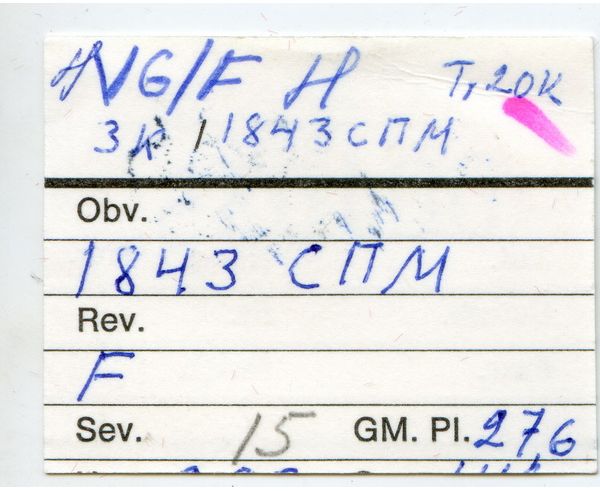 VG/F H Т, 20К
3К / 1843 СПМ
Obv.
1843 СПМ
Rev.
F
Sev. 15 GM. Pl. 27,6